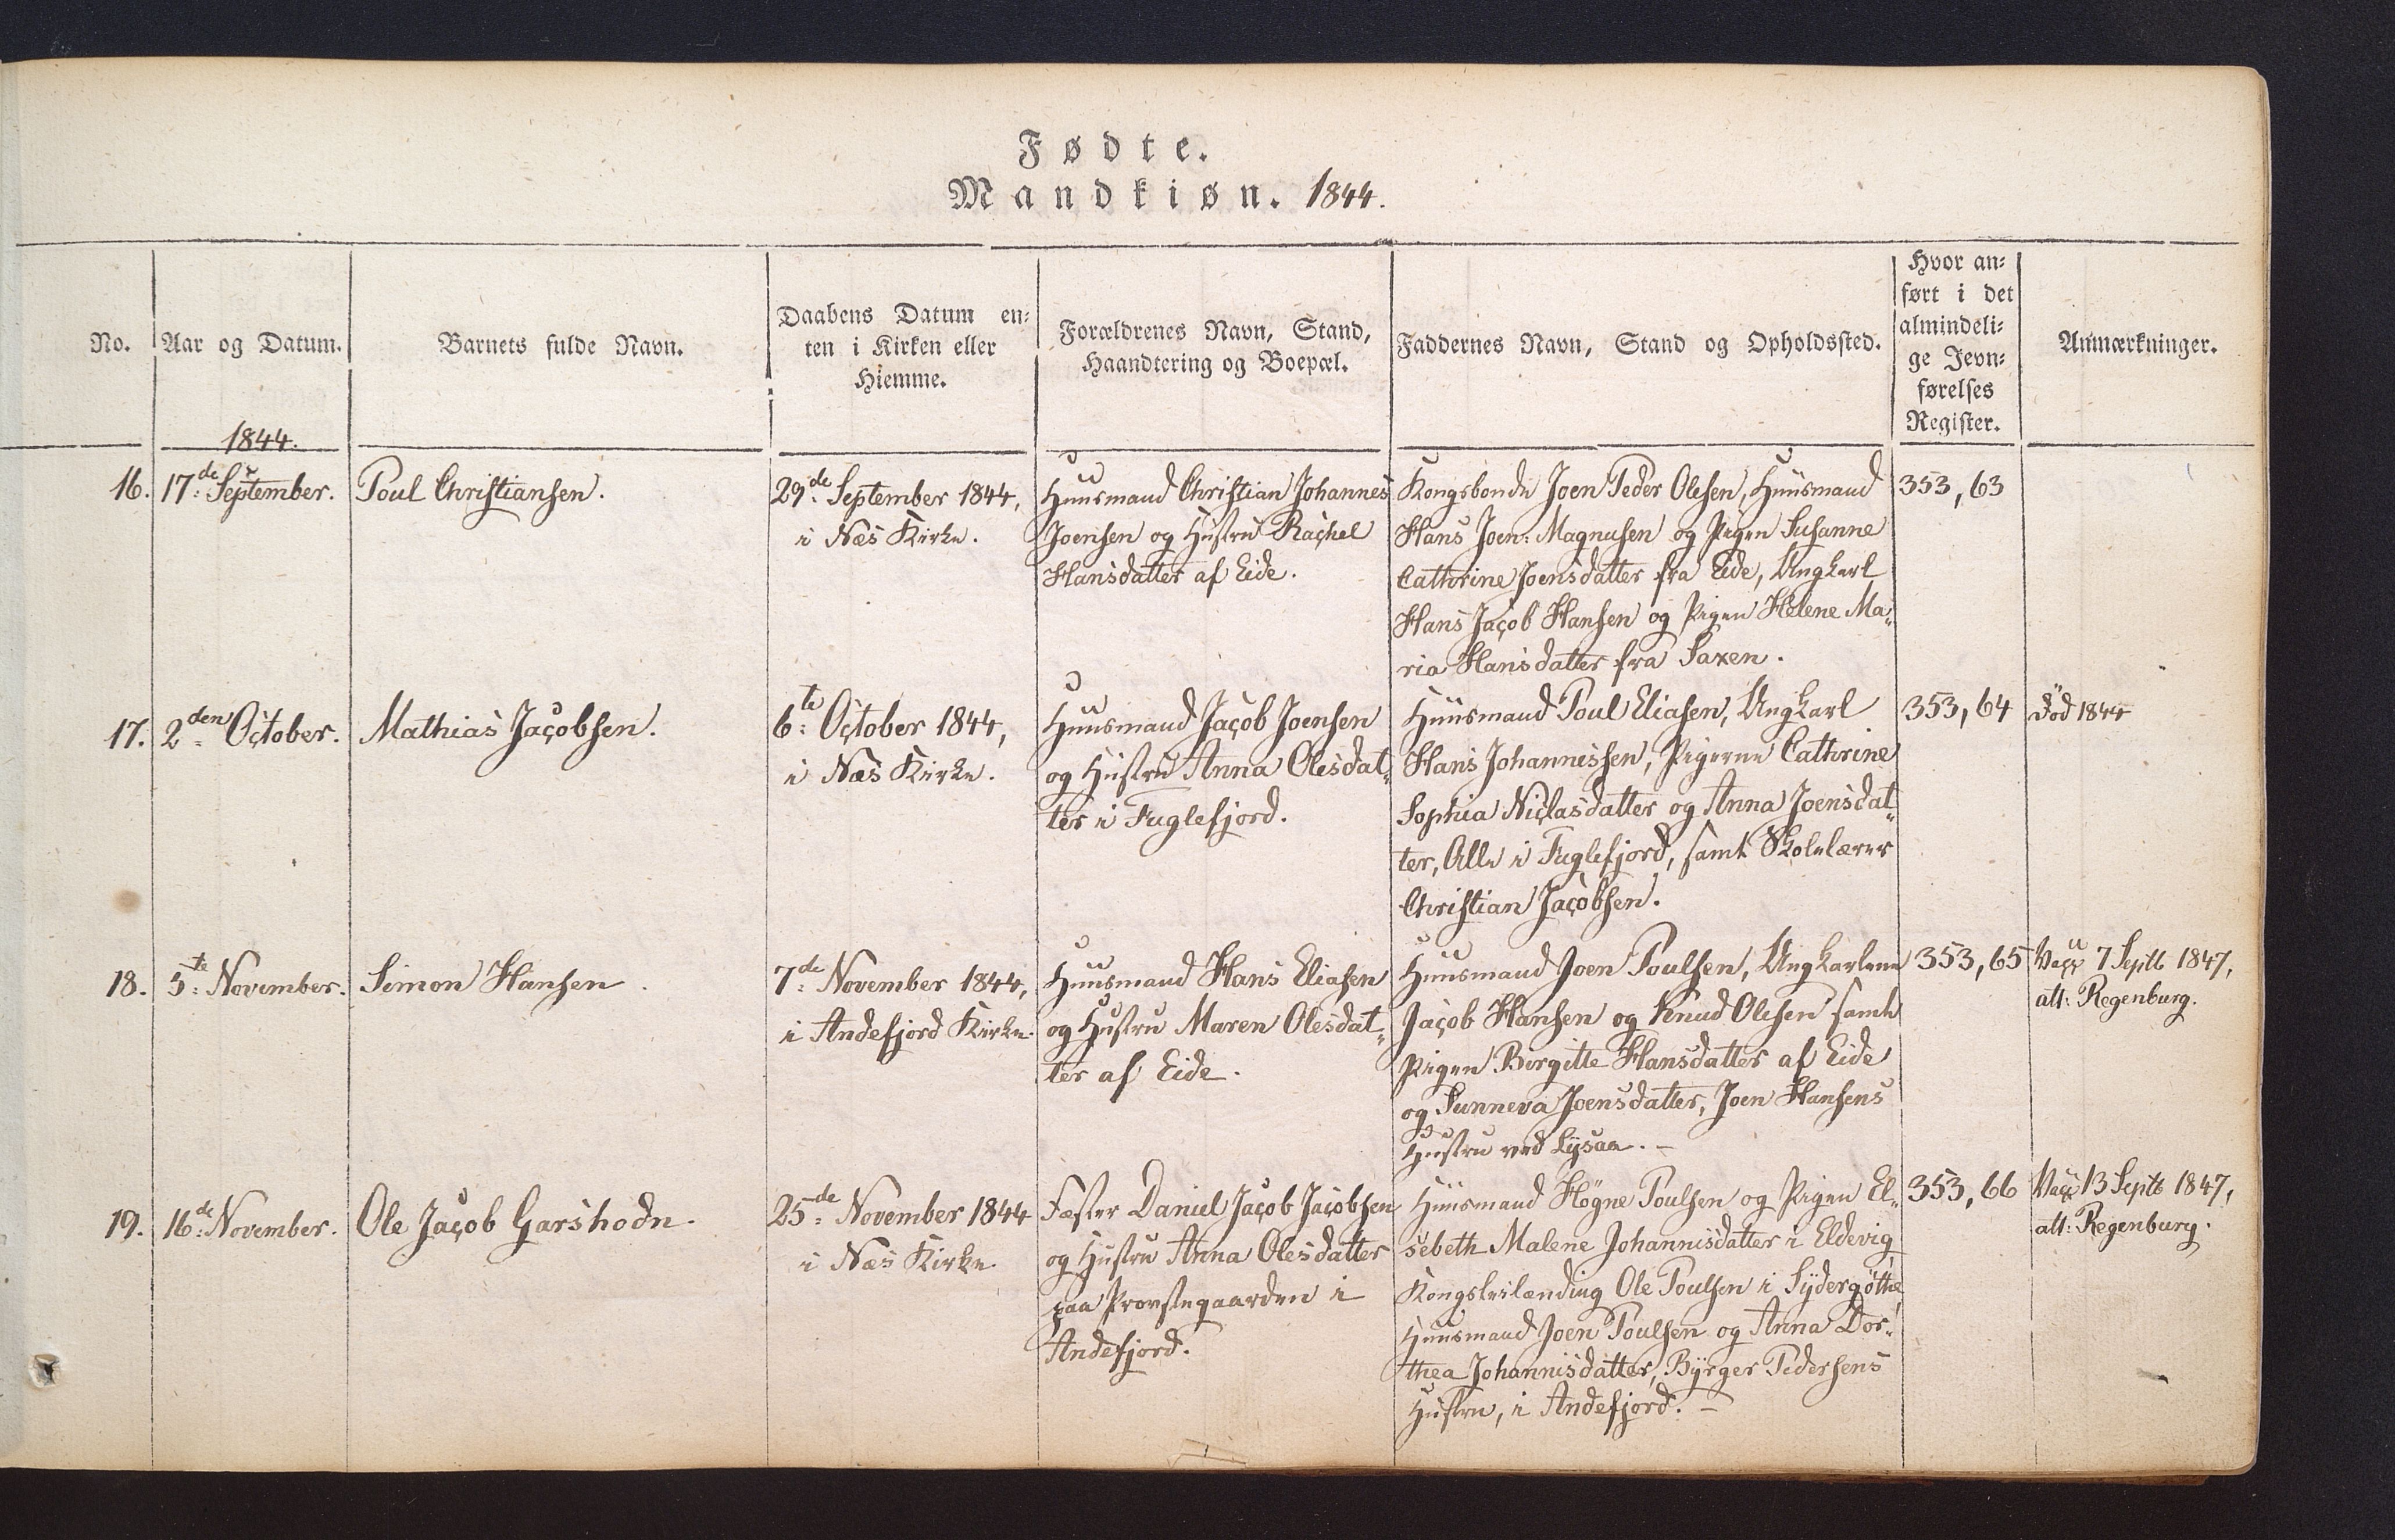 Fødte.
Mandkiøn. 1844.
No.
Aar og Datum.
1844.
Barnets fulde Navn.
Daabens Datum en-
ten i Kirken eller
Hiemme.
Forældrenes Navn, Stand,
Haandtering og Boepæl.
Faddernes Navn, Stand og Opholdssted.
Hvor an-
ført i det
almindeli-
ge Jevn-
førelses
Register.
Anmærkninger.
16.
17de September.
Poul Christiansen.
29de September 1844,
i Næs Kirke.
Huusmand Christian Johannes
Joensen og Hustru Rachel
Hansdatter af Eide.
Kongsbonde Joen Peder Olesen, Huusmand
Hans Joen: Magnusen og Pigen Susanne
Cathrine Joensdatter fra Eide, Ungkarl
Hans Jacob Hansen og Pigen Helene Ma-
ria Hansdatter fra Saxen.
353,63
17.
2den October.
Mathias Jacobsen.
6te October 1844,
i Næs Kirke.
Huusmand Jacob Joensen
og Hustru Anna Olesdat-
ter i Fuglefjord.
Huusmand Poul Eliasen, Ungkarl
Hans Johannissen, Pigerne Cathrine
Sophia Niclasdatter og Anna Joensdat-
ter, Alle i Fuglefjord, samt Skolelærer
Christian Jacobsen.
353,64
död 1844
18.
5te November.
Simon Hansen.
7de November 1844,
i Andefjord Kirke.
Huusmand Hans Eliasen
og Hustru Maren Olesdat-
ter af Eide.
Huusmand Joen Poulsen, Ungkarlene
Jacob Hansen og Knud Olesen samt
Pigen Birgitte Hansdatter af Eide
og Sunneva Joensdatter, Joen Hansens
Hustru ved Lysaa. -
353,65
Vacc 7 Septb 1847,
att: Regenburg.
19.
16de November.
Ole Jacob Garshodn.
25de November 1844
i Næs Kirke
Fæster Daniel Jacob Jacobsen
og Hustru Anna Olesdatter
paa Provstegaarden i
Andefjord.
Huusmand Högne Poulsen og Pigen El-
sebeth Malene Johannisdatter i Eldevig
Kongsleilænding Ole Poulsen i Sydergøthe,
Huusmand Joen Poulsen og Anna Dor-
thea Johannisdatter, Byrger Pedersens
Hustru, i Andefjord. -
353,66
Vacc 13 Septb 1847,
att: Regenburg.